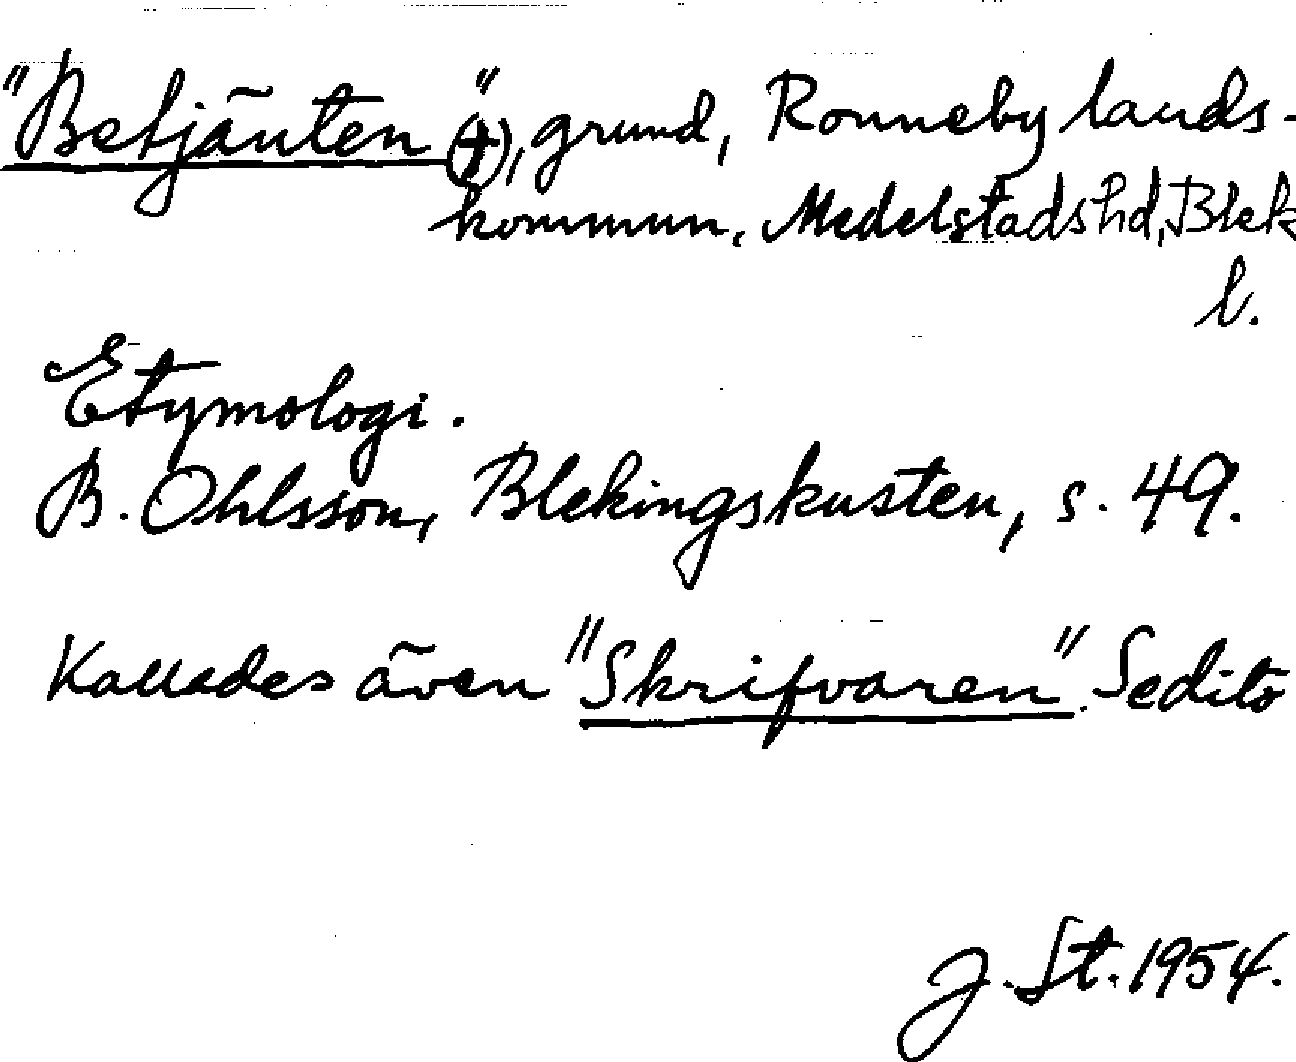 "Betjänten" (†), grund, Ronneby lands-
kommun, Medelstads hd, Blek
l.
Etymologi.
B. Ohlsson, Blekingskusten, s. 49.
Kallades även "Skrifvaren". Se dito
J. St. 1954.